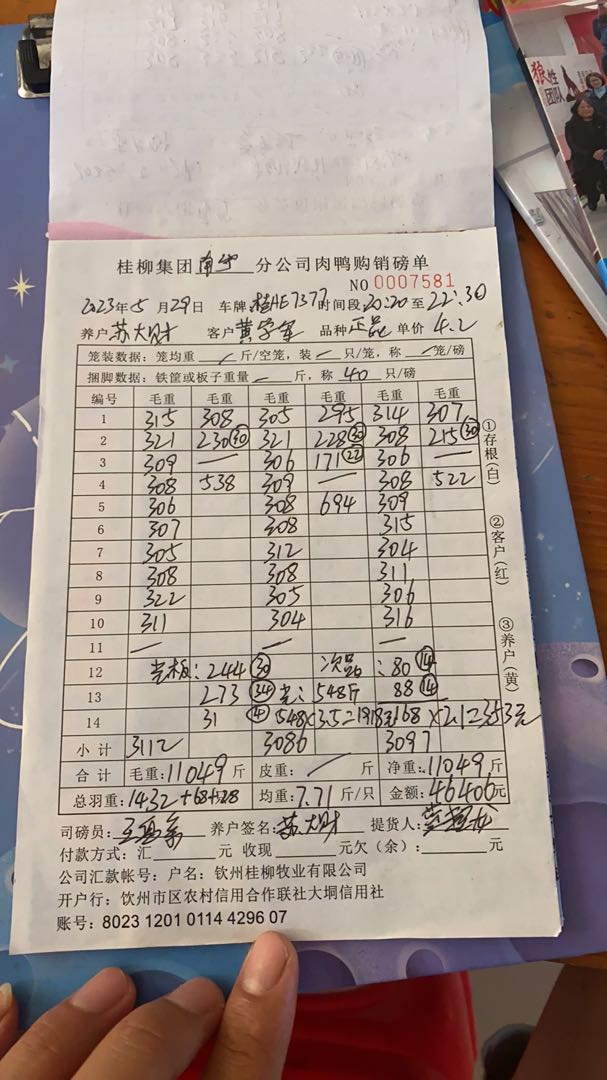 狼性
团队
桂柳集团南宁分公司肉鸭购销磅单
NO 0007581
2023年5月29日 车牌:桂HE7377时间段20:20至22:30
养户苏大财 客户黄学军 品种正品 单价 4.2
笼装数据:笼均重/斤/空笼,装/只/笼,称/笼/磅
捆脚数据:铁筐或板子重量/斤,称40只/磅
编号 毛重 毛重 毛重 毛重 毛重 毛重
1 315 308 305 295 314 307
2 321 230(30) 321 228(30) 308 215(30)
3 309 — 306 171(22) 306 —
4 308 538 309 — 308 522
5 306 308 694 309
6 307 308 315
7 305 312 304
8 308 308 311
9 322 305 306
10 311 304 316
11 — — —
12 光板:244(30) 次品:80(14)
13 273(34) 光:548斤 88(14)
14 31(4) 548×3.5=1918元 168×2.1=353元
小计 3112 3086 3097
合计 毛重:11049斤 皮重:/斤 净重:11049斤
总羽重:1432+68+28 均重:7.71斤/只 金额:46406元
司磅员: 养户签名:苏大财 提货人:
付款方式:汇 元 收现 元欠(余): 元
公司汇款帐号:户名:钦州桂柳牧业有限公司
开户行:钦州市区农村信用合作联社大垌信用社
账号:8023 1201 0114 4296 07
①存根(白)
②客户(红)
③养户(黄)